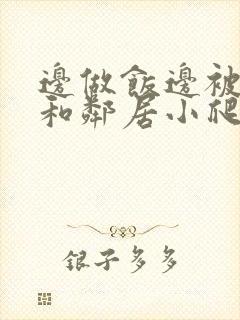 邊做飯邊被
和鄰居小爬
銀子多多